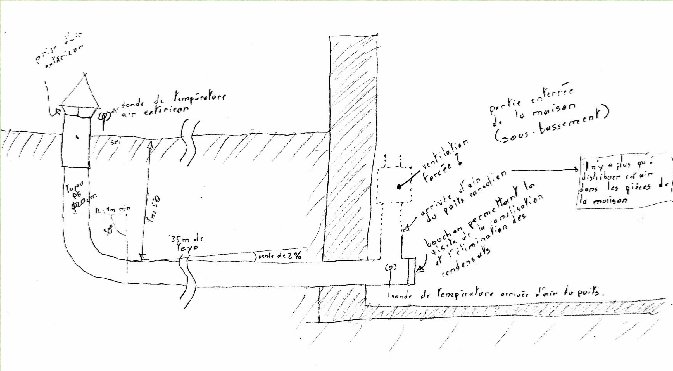 prise d'air
extérieur
sonde de température
air extérieur
sol
tuyau
R. 1m min
35m de
tuyo
pente de 2%
ventilation
forcée ?
arrivée d'air
du puits canadien
bouchon permettant la
visite de la canalisation
et l'élimination des
condensats
partie enterrée
de la maison
(sous-bassement)
Il n'y a plus qu'à
distribuer cet air
dans les pièces de
la maison
sonde de température arrivée d'air du puits.